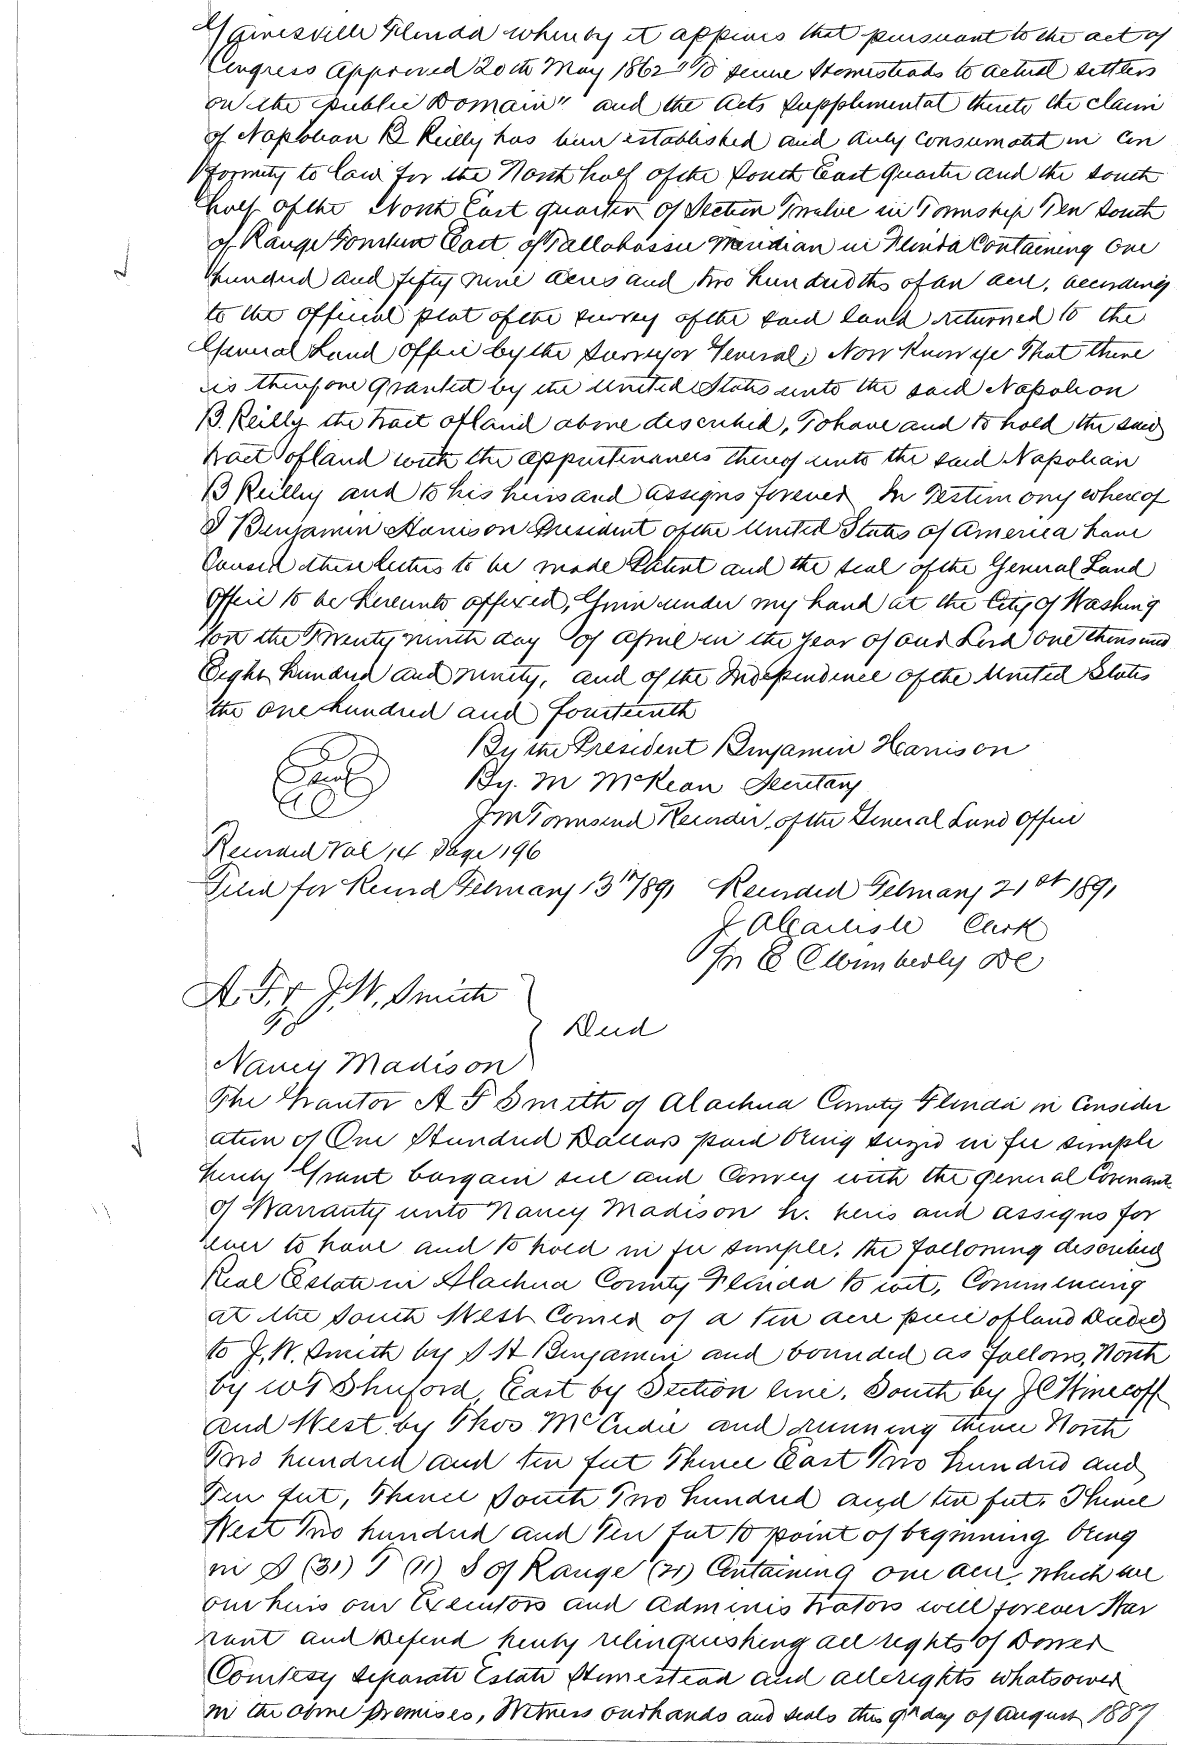 Gainesville Florida whereby it appears that pursuant to the act of
Congress Approved 20th May 1862 "To secure Homesteads to actual settlers
on the public Domain" and the Acts supplemental thereto the claim
of Napolean B Reilly has been established and duly consumated in Con
formity to law for the North half of the South East quarter and the south
half of the North East quarter of Section Twelve in Township Ten South
of Range Fourteen East of Tallahassee Meridian in Florida Containing One
hundred and fifty nine acres and two hundredths of an acre, according
to the official plat of the survey of the said land returned to the
General Land Office by the Surveyor General; Now Know ye That there
is therefore granted by the United States unto the said Napoleon
B. Reilly the tract of land above described, To have and to hold the said
tract of land with the appurtenances thereof unto the said Napolean
B Reilly and to his heirs and assigns forever In Testimony whereof
I Benjamin Harrison President of the United States of America have
Caused these letters to be made Patent and the seal of the General Land
Office to be hereunto affixed, Given under my hand at the City of Washing
ton the Twenty ninth day of April in the year of our Lord one thousand
Eight hundred and ninety, and of the Independence of the United States
the one hundred and fourteenth
By the President Benjamin Harrison
Seal
By. M McKean Secretary
J M Townsend Recorder of the General Land Office
Recorded Vol 14 Page 196
Filed for Record February 13th 1891 Recorded February 21st 1891
J A Carlisle Clerk
Pr E C Wimberly DC
A. F. & J. W. Smith
To
Deed
Nancy Madison
The Grantor A F Smith of Alachua County Florida in Consider
ation of One Hundred Dollars paid being seized in fee simple
hereby Grant bargain sell and Convey with the general Covenant
of Warranty unto Nancy Madison h. heris and assigns for
ever to have and to hold in fee simple. the following described
Real Estate in Alachua County Florida to wit, Commencing
at the South West Corner of a ten acre piece of land Deeded
to J. W. Smith by S H Benjamin and bounded as follows, North
by W T Shuford, East by Section line. South by J C Winecoff
and West by Thos McCrdie and running thence North
Two hundred and ten feet Thence East Two hundred and
Ten feet, Thence South Two hundred and ten feet. Thence
West Two hundred and Ten feet to point of beginning being
in S (31) T (11) S of Range (21) Containing one acre, which we
our heirs our Executors and administrators will forever War
rant and Defend hereby relinquishing all rights of Dower
Courtesy separate Estate Homestead and all rights whatsoever
in the above premises, Witness our hands and seals this 9th day of August 1887